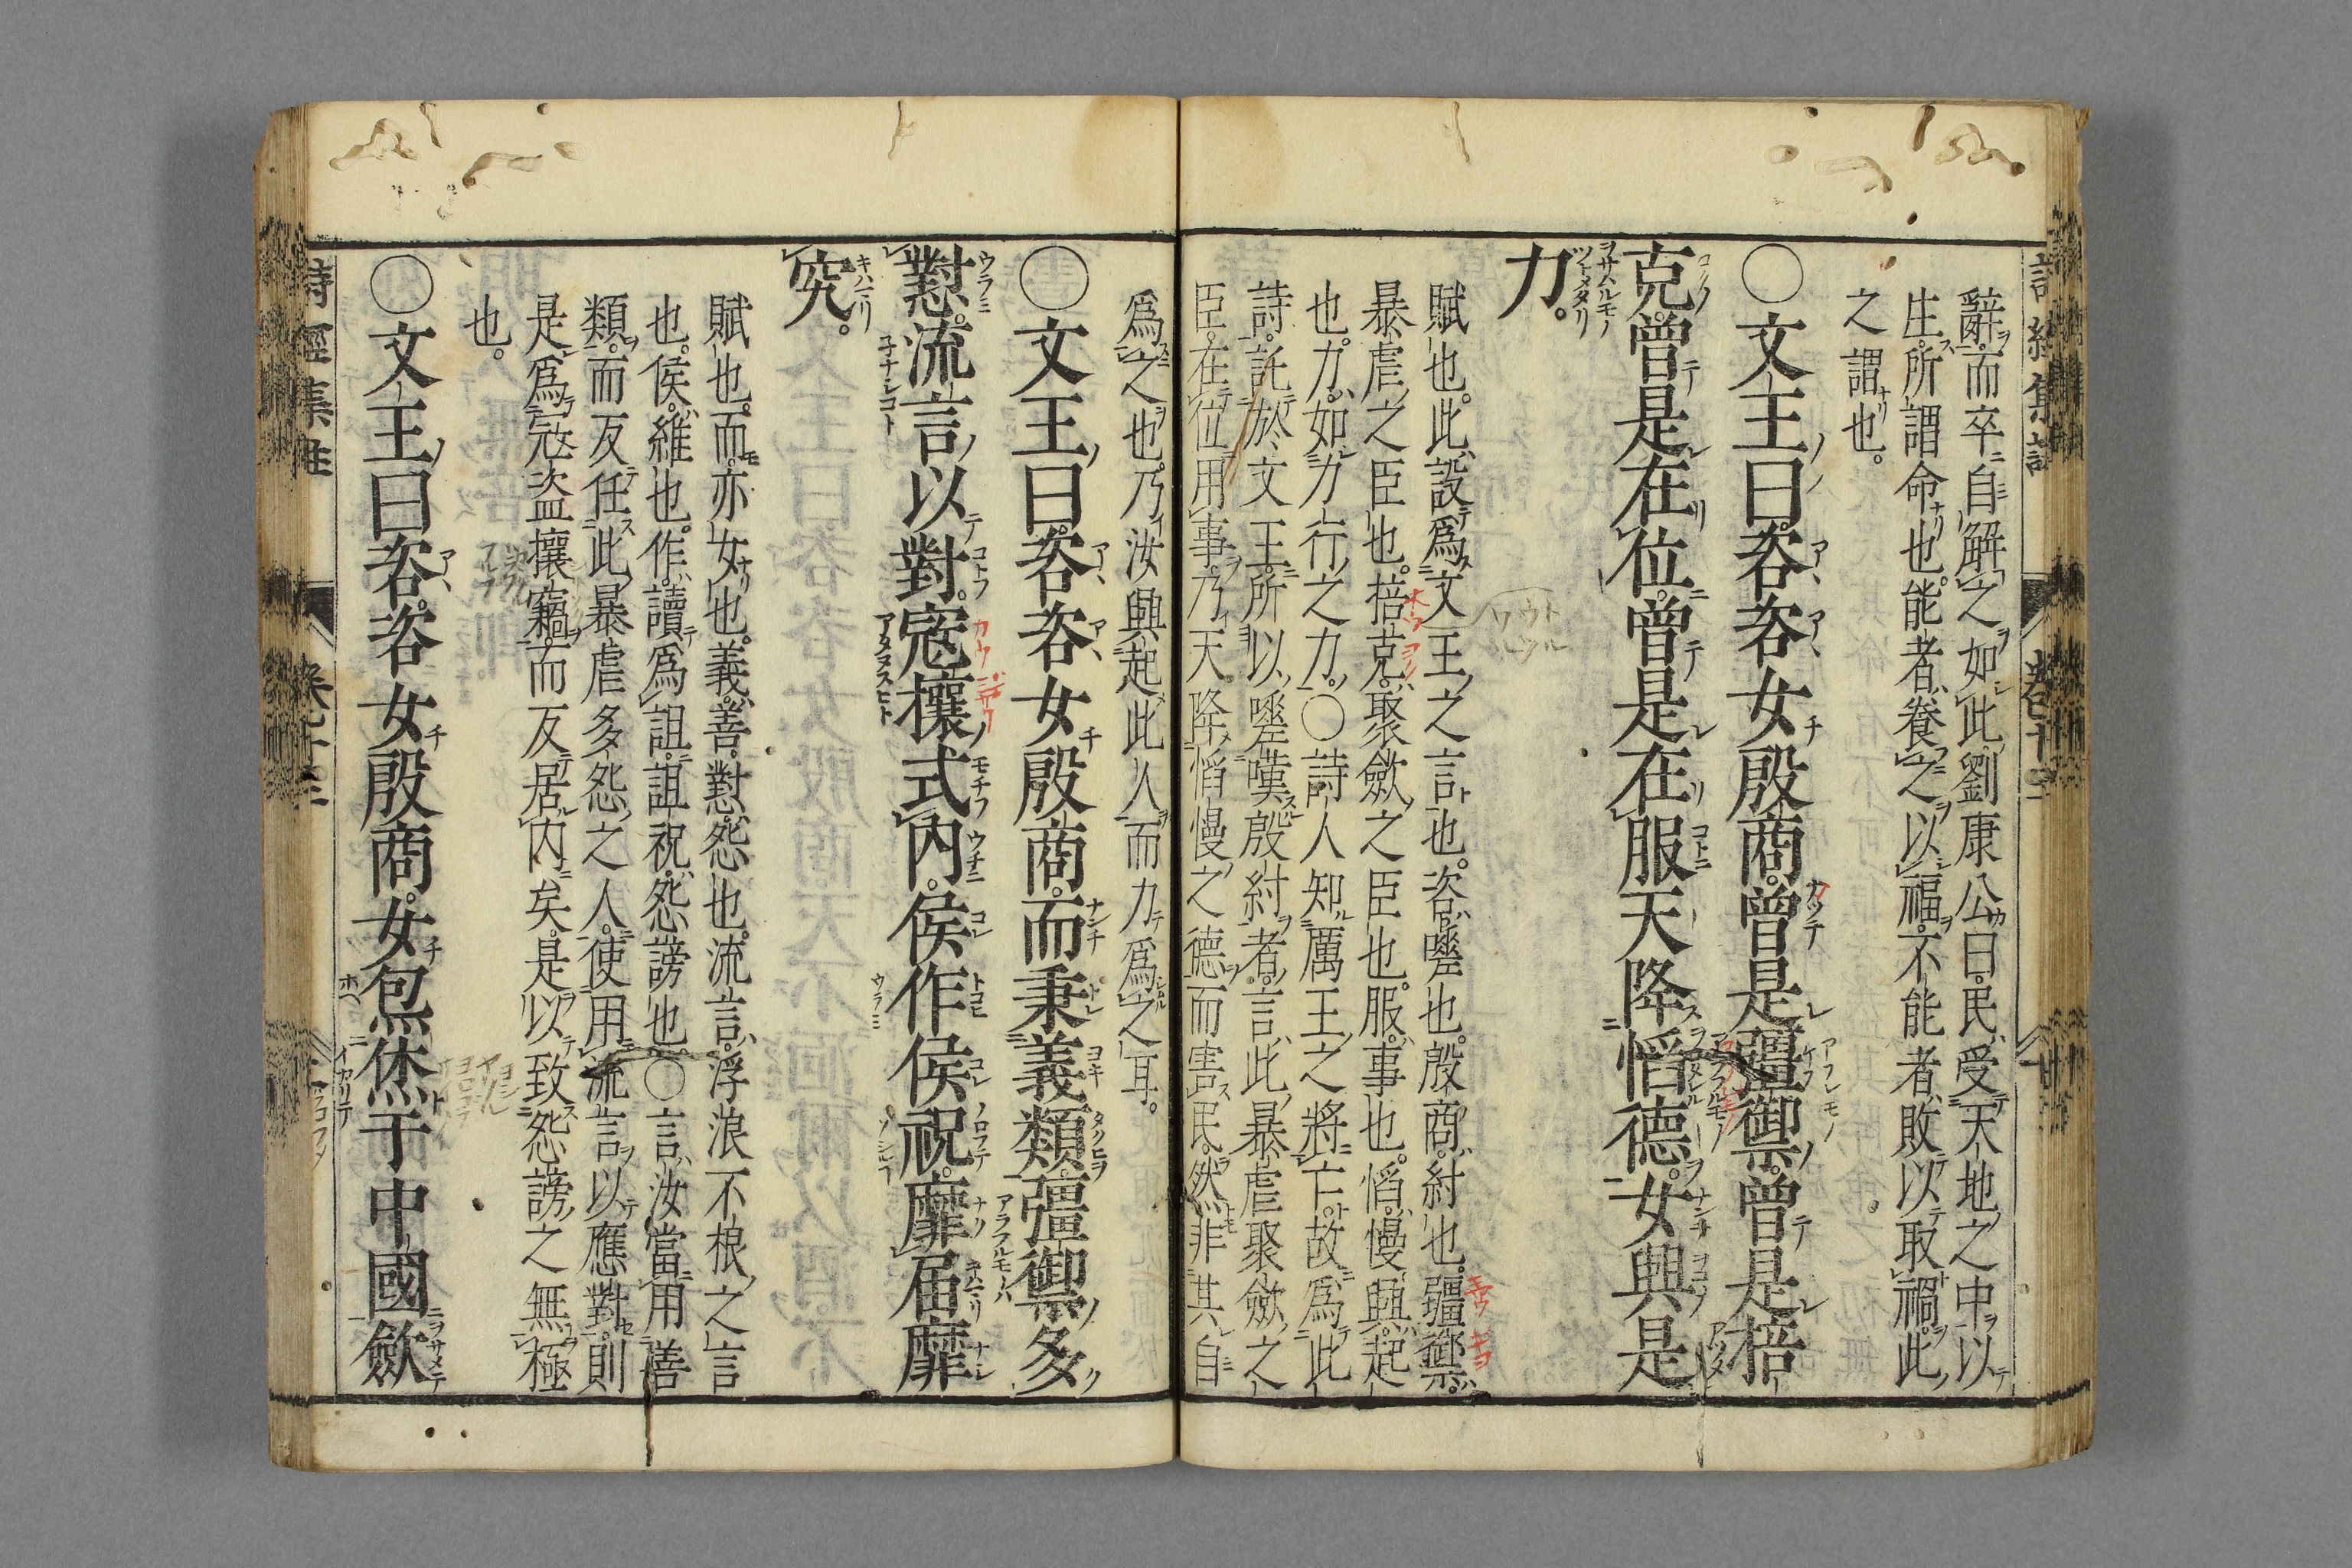 辭而卒自解之如此劉康公曰民受天地之中以
生所謂命也能者養之以福不能者敗以取禍此
之謂也
○文王曰咨咨女殷商曾是彊禦曾是掊
克曾是在位曾是在服天降慆德女興是
力
賦也此設爲文王之言也咨嗟也殷商紂也彊禦
暴虐之臣也掊克聚斂之臣也服事也慆慢興起
也力如力行之力○詩人知厲王之將亡故爲此
詩託於文王所以嗟嘆殷紂者言此暴虐聚斂之
臣在位用事乃天降慆慢之德而害民然非其自
爲之也乃汝興起此人而力爲之耳
○文王曰咨咨女殷商而秉義類彊禦多
懟流言以對寇攘式內侯作侯祝靡届靡
究
賦也而亦女也義善懟怨也流言浮浪不根之言
也侯維也作讀爲詛詛祝怨謗也○言汝當用善
類而反任此暴虐多怨之人使用流言以應對則
是爲寇盗攘竊而反居內矣是以致怨謗之無極
也
○文王曰咨咨女殷商女包烋烋于中國斂